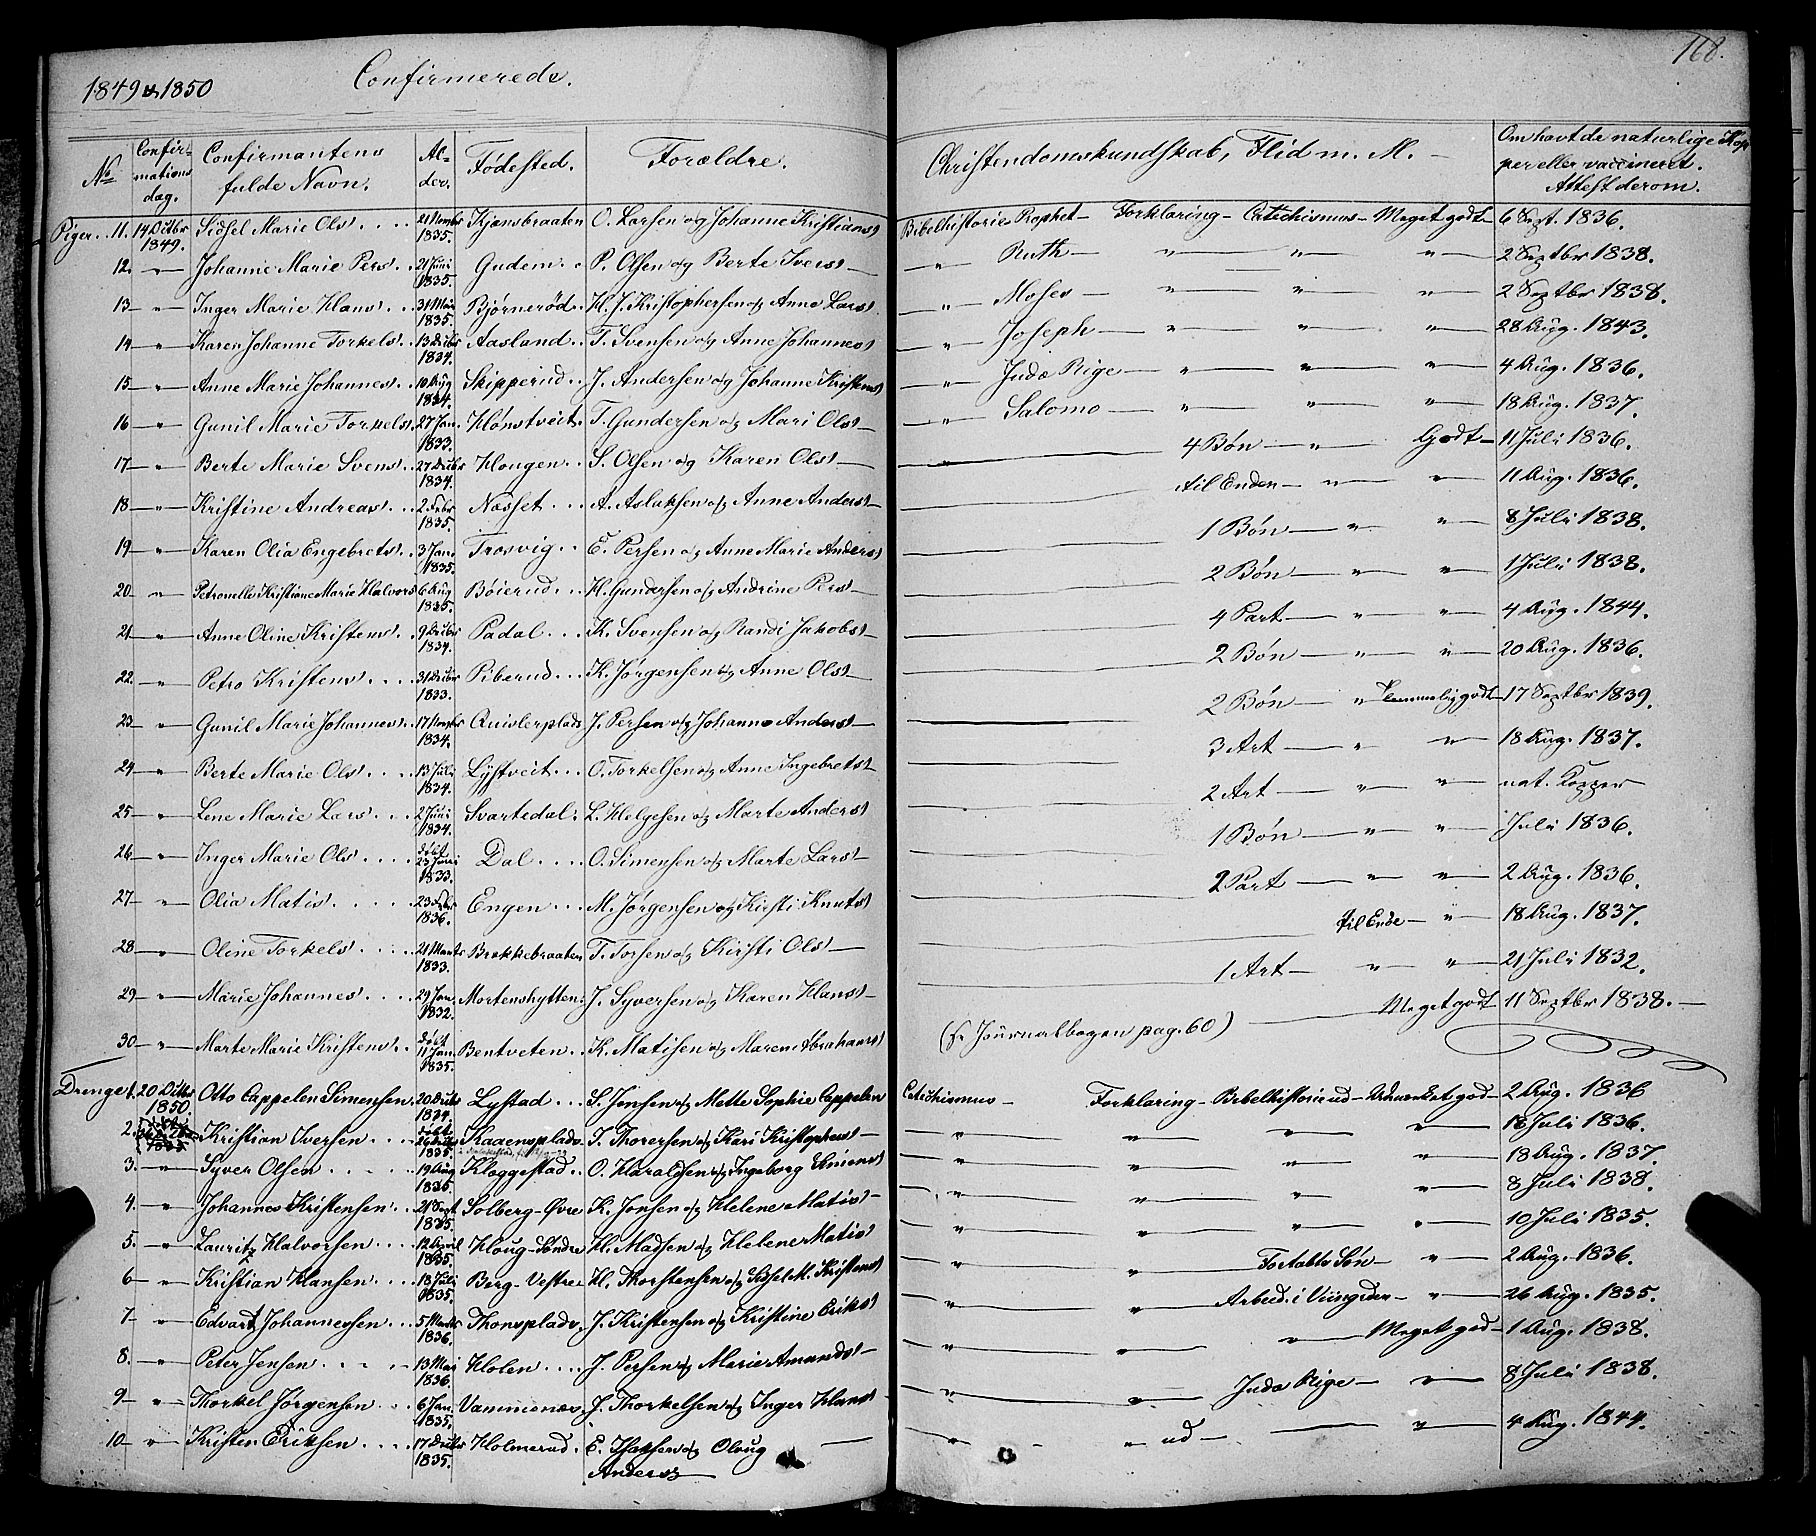 1849 & 1850 Confirmerede. 168.
No Confirmations dag. Confirmantens fulde Navn. Alder. Fødested. Forældre. Christendomskundskab, Flid m. M. Om havt de naturlige Kopper eller vaccineret. Attest derom.
Piger 11. 14 Octbr 1849. Sidsel Marie Ols 21 Novbr 1835. Kjønsbraaten O. Larsen og Johanne Kristians Bibelhistorie Rophet Forklaring Catichismus Meget godt 6 Sept. 1836.
12. " Johanne Marie Pers 21 Juni 1835. Gudem P. Olsen og Berte Ivers " Ruth " " " 2 Septbr 1838.
13 " Inger Marie Hans 31 Mai 1835. Bjørnerød H. J. Kristophersen og Anne Lars " Moses " " " 2 Septbr 1838.
14 " Karen Johanne Torkels 13 Decbr 1834. Aasland T. Svensen og Anne Johannes " Joseph " " " 28 Aug. 1843.
15 " Anne Marie Johannes 10 Aug 1834. Skipperud J. Andersen og Johanne Kristens " Juda Rige " " " 4 Aug. 1836.
16 " Gunil Marie Torkels 27 Jan. 1833. Hønstveit T. Gundersen og Mari Ols " Salomo " " " 18 Aug. 1837.
17 " Berte Marie Svens 27 Decbr 1834. Hougen S. Olsen og Karen Ols " 4 Bøn " Godt 11 Juli 1836.
18 " Kristine Andreas 2 Febr 1835. Næsset A. Aslaksen og Anne Anders til Enden " " 11 Aug. 1836.
19 " Karen Olia Engebrets 3 Jan. 1835. Trosvig E. Persen og Anne Marie Anders 1 Bøn " " 8 Juli 1838.
20 " Petronelle Kristiane Marie Halvors 6 Aug 1835. Bøierud H. Gundersen og Andrine Pers 2 Bøn " " 1 Juli 1838.
21 " Anne Oline Kristens 9 Decbr 1834. Padal K. Svensen og Randi Jakobs 4 Part " " 4 Aug. 1844.
22. " Petro Kristens 31 Decbr 1833. Piberud K. Jørgensen og Anne Ols 2 Bøn " " 20 Aug. 1836.
23 " Gunil Marie Johannes 17 Novbr 1834. Quislerplads J. Persen og Johanne Anders 2 Bøn " Temmelig godt 17 Septbr 1839.
24 " Berte Marie Ols 13 Juli 1834. Lystveit O. Torkelsen og Anne Ingebrets 3 Art " " 18 Aug. 1837.
25 " Lene Marie Lars 2 Juni 1834. Svartedal L. Helgesen og Marte Anders 2 Art " " nat. Kopper
26 " Inger Marie Ols døbt 23 Juni 1833. Dal O. Simensen og Marte Lars 1 Bøn " " Juli 1836.
27 " Olia Matis 23 Febr 1836. Engen M. Jørgensen og Kirsti Knuts 2 Part " " 2 Aug. 1836.
28 " Oline Torkels 21 Marts 1833. Brekkebraaten T. Torsen og Kirsti Ols til Ende " 18 Aug. 1837.
29 " Marie Johannes 29 Jan. 1832. Mortenshytten J. Syversen og Karen Hans 1 Art " " 21 Juli 1832.
30 " Marte Marie Kristens døbt 11 Jan. 1835. Bentveten K. Matisen og Maren Abrahams (fr Journalbogen pag. 60) Meget godt 11 Septbr 1838.
Drenge 1. 20 Octbr 1850. Otto Cappelen Simensen 20 Decbr 1834. Lystad S. Jonsen og Mette Sophie Cappelen Catichismus Forklaring Bibelhistorie ud Udmærket god 2 Aug. 1836
2. Kristian Iversen døbt 26 Decbr 1835. Kaaensplads I. Thorersen og Kari Kristophers " " " " 18 Juli 1836.
3. " Syver Olsen 19 Aug 1835. Kloggestad O. Haraldsen og Ingeborg Simens " " " " 18 Aug. 1837.
4. " Johannes Kristensen 21 Sept 1835. Solberg-Øvre K. Jonsen og Helene Matis " " " " 8 Juli 1838.
5. " Lauritz Halvorsen 12 April 1835. Houg-Søndre H. Madsen og Helene Matis " " " " 10 Juli 1835.
6 " Kristian Hansen 18 Juli 1835. Berg-Vestre H. Thorstensen og Sissel M. Kristens " " Fortabte Søn " 2 Aug. 1836.
7 " Edvart Johannessen 5 Marts 1836. Thonsplads J. Kristensen og Kristine Eriks " " Arbeid. i Viingden " 26 Aug. 1835.
8. " Peter Jensen 13 Mai 1836. Holen J. Persen og Marie Amunds " " " Meget god 1 Aug. 1838.
9 " Thorkel Jørgensen 6 Jan. 1835. Vammenæs J. Thorkelsen og Inger Hans " " Juda Rige " 8 Juli 1838.
10 " Kristen Eriksen 17 Decbr 1835. Holmerud E. Isaksen og Olaug Anders " " ud " 4 Aug. 1844.